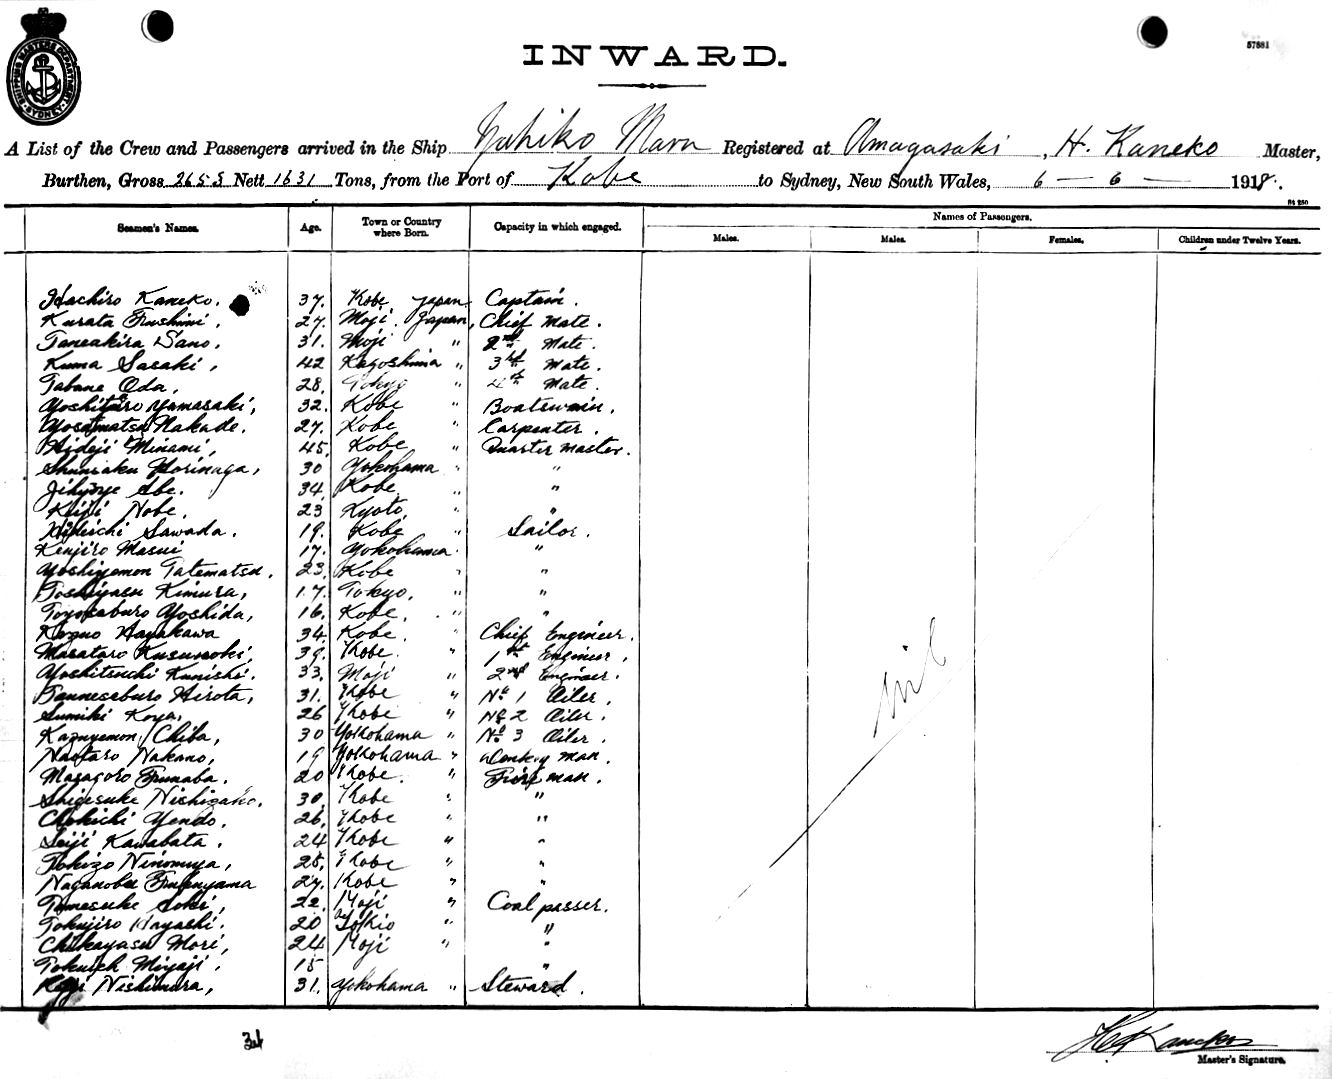 SHIPPING MASTERS DEPARTMENT SYDNEY
57881
INWARD.
A List of the Crew and Passengers arrived in the Ship Yahiko Maru Registered at Amagasaki, H. Kaneko Master,
Burthen, Gross 2655 Nett 1631 Tons, from the Port of Kobe to Sydney, New South Wales, 6 — 6 — 1918.
Seamen's Names. Age. Town or Country where Born. Capacity in which engaged. Names of Passengers.
Males. Males. Females. Children under Twelve Years.
Hachiro Kaneko. 37. Kobe Japan Captain.
Kurata 27. Moji. Japan, Chief Mate.
Taneakira Sano. 31. Moji " 2nd Mate.
Kuma Sasaki, 42 Kagoshima " 3rd Mate.
Tabane Oda, 28. Tokyo " 4th Mate.
Yoshitaro Yamasaki, 32. Kobe " Boatswain.
Yosamatsu Nakade. 27. Kobe " Carpenter.
Hideji Minami, 45. Kobe " Quarter Master.
Morinaga, 30 Yokohama " "
Abe. 34. Kobe " "
Keiji Nobe. 23 Kyoto, " "
Hideichi Sawada. 19. Kobe " Sailor.
Kenjiro Masui 17. Yokohama " "
Yoshiyemon Tatematsu. 23. Kobe " "
Toshiyasu Kimura, 17. Tokyo, " "
Toyosaburo Yoshida, 16. Kobe. " "
Kozuo Hayakawa 34. Kobe. " Chief Engineer.
Masataro Kusunoki, 39. Kobe. " 1st Engineer.
Yoshitsuchi Kunishi. 33. Moji " 2nd Engineer.
Tsunesaburo Hirota, 31. Kobe " No 1 Oiler.
Sumiki Koya, 26 Kobe " No 2 Oiler.
Kazuyemon Chiba, 30 Yokohama " No 3 Oiler.
Naotaro Nakano, 19 Yokohama " Donkey man.
Masagoro Funaba. 20 Kobe. " Fire man.
Shigesuke Nishizako. 30. Kobe " "
Chokichi Yendo. 26. Kobe " "
Seiji Kawabata. 24 Kobe " "
Tokizo Ninomiya, 25. Kobe " "
Naganobu Fukuyama 27. Kobe " "
Tamesuke Seki, 22. Moji " Coal passer.
Tokujiro Hayashi. 20 Tokio " "
Chikayasu Mori, 24 Moji " "
Tokuich Miyaji. 15 "
Nishimura, 31. Yokohama " Steward.
nil
34
H Kaneko
Master's Signature.